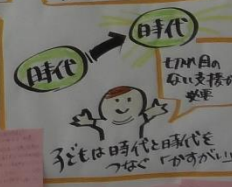 時代
時代
切れ目の
ない支援が
必要
子どもは時代と時代を
つなぐ「かすがい」